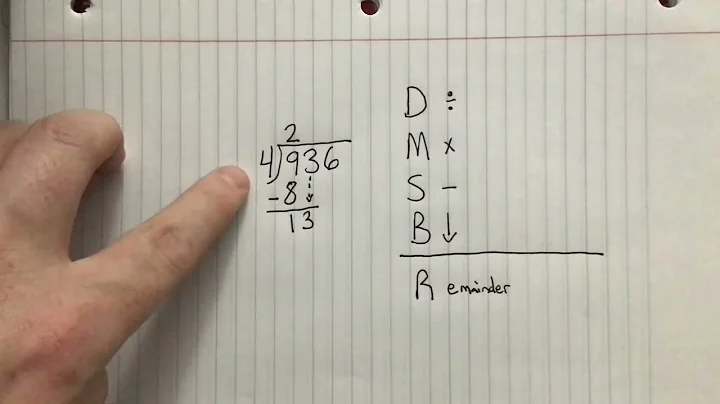 2
4)936
-8
13
D ÷
M ×
S -
B ↓
Remainder